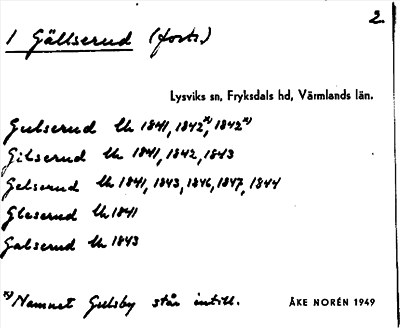 2.
1 Gällserud (forts.)
Lysviks sn, Fryksdals hd, Värmlands län.
Gulserud Lk 1841, 1842ˣ⁾, 1842ˣ⁾
Gilserud Lk 1841, 1842, 1843
Gelserud Lk 1841, 1843, 1846, 1847, 1844
Gleserud Lk 1841
Galserud Lk 1843
ˣ⁾ Namnet Gulsby står intill.
ÅKE NORÉN 1949